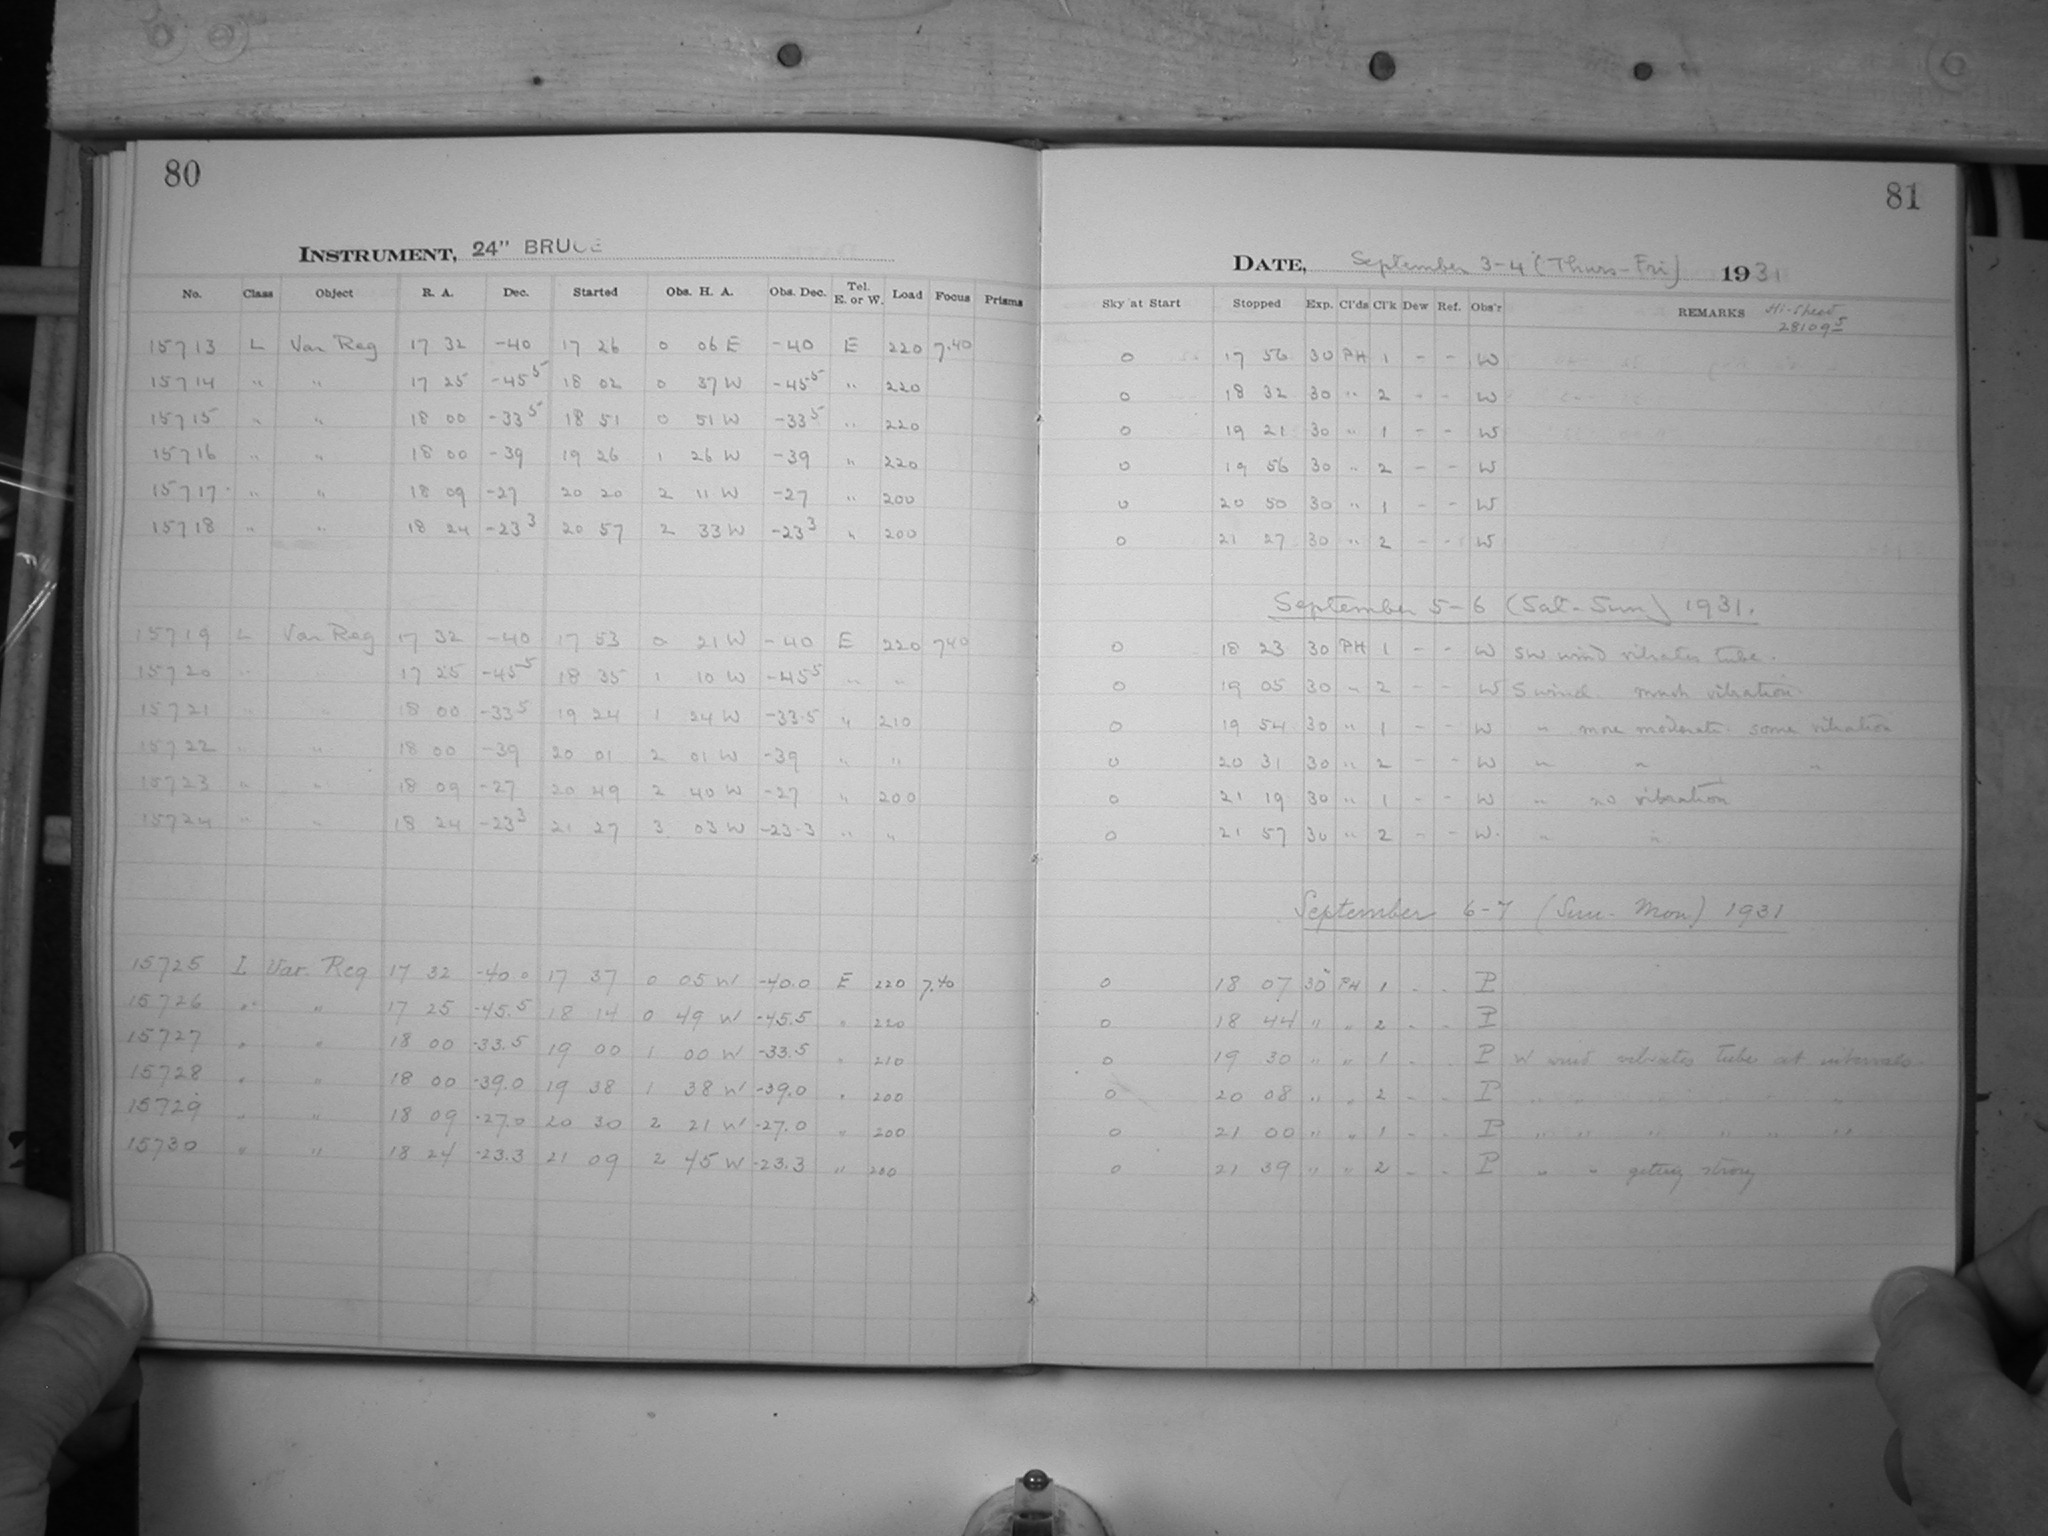 80
INSTRUMENT, 24" BRUCE
No. Class Object R. A. Dec. Started Obs. H. A. Obs. Dec. Tel. E. or W. Load Focus Prisms
15713 L Var Reg 17 32 -40 17 26 0 06 E -40 E 220 7.40
15714 " " 17 25 -45 5 18 02 0 37 W -45 5 " 220
15715 " " 18 00 -33 5 18 51 0 51 W -33 5 " 220
15716 " " 18 00 -39 19 26 1 26 W -39 " 220
15717 " " 18 09 -27 20 20 2 11 W -27 " 200
15718 " " 18 24 -23 3 20 57 2 33 W -23 3 " 200
15719 L Var Reg 17 32 -40 17 53 0 21 W -40 E 220 740
15720 " " 17 25 -45 5 18 35 1 10 W -45 5 " "
15721 " " 18 00 -33 5 19 24 1 24 W -33.5 " 210
15722 " " 18 00 -39 20 01 2 01 W -39 " "
15723 " " 18 09 -27 20 49 2 40 W -27 " 200
15724 " " 18 24 -23 3 21 27 3 03 W -23.3 " "
15725 I Var. Reg 17 32 -40.0 17 37 0 05 W -40.0 E 220 7.40
15726 " " 17 25 -45.5 18 14 0 49 W -45.5 " 220
15727 " " 18 00 -33.5 19 00 1 00 W -33.5 " 210
15728 " " 18 00 -39.0 19 38 1 38 W -39.0 " 200
15729 " " 18 09 -27.0 20 30 2 21 W -27.0 " 200
15730 " " 18 24 -23.3 21 09 2 45 W -23.3 " 200
81
DATE, September 3-4 (Thurs-Fri) 1931
Sky at Start Stopped Exp. Cl'ds Cl'k Dew Ref. Obs'r REMARKS Hi-Speed
28109 5
0 17 56 30 PH 1 - - W
0 18 32 30 " 2 - - W
0 19 21 30 " 1 - - W
0 19 56 30 " 2 - - W
0 20 50 30 " 1 - - W
0 21 27 30 " 2 - - W
September 5-6 (Sat-Sun) 1931.
0 18 23 30 PH 1 - - W SW wind vibrates tube.
0 19 05 30 " 2 - - W S wind. much vibration.
0 19 54 30 " 1 - - W " more moderate. some vibration
0 20 31 30 " 2 - - W " " "
0 21 19 30 " 1 - - W " no vibration
0 21 57 30 " 2 - - W. " "
September 6-7 (Sun-Mon) 1931
0 18 07 30 PH 1 - - P
0 18 44 " " 2 - - P
0 19 30 " " 1 - - P W wind vibrates tube at intervals.
0 20 08 " " 2 - - P " " " " " "
0 21 00 " " 1 - - P " " " " " "
0 21 39 " " 2 - - P " " getting strong